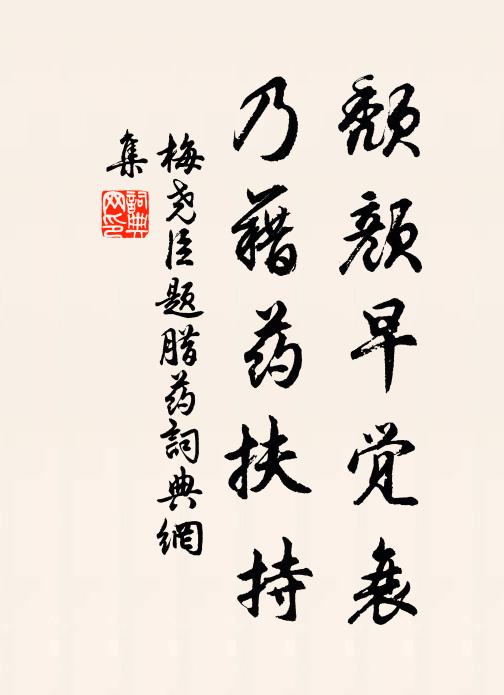 颓颜早觉衰
乃藉药扶持
梅尧臣题腊药词典網
集
詞典网印